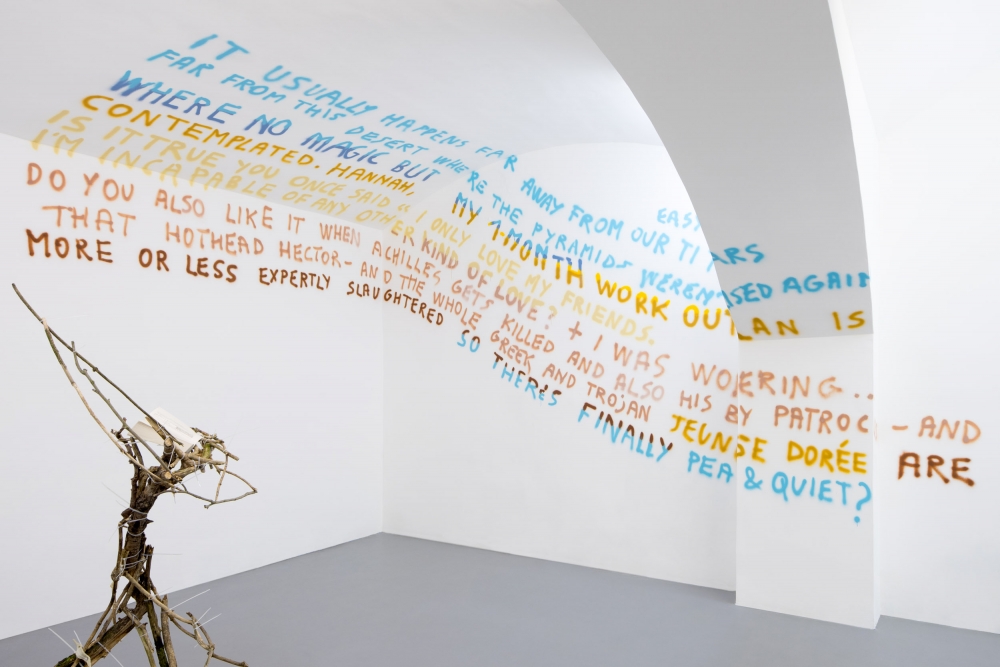 IT USUALLY HAPPENS FAR AWAY FROM OUR EAS
FAR FROM THIS DESERT WHERE THE PYRAMIDS WEREN'T ISED AGAIN
WHERE NO MAGIC BUT MY 1-MONTH WORK OUT LAN IS
CONTEMPLATED. HANNAH,
IS IT TRUE YOU ONCE SAID "I ONLY LOVE MY FRIENDS.
I'M INCAPABLE OF ANY OTHER KIND OF LOVE? + I WAS WO ERING...
DO YOU ALSO LIKE IT WHEN ACHILLES GETS KILLED AND ALSO HIS BY PATROC - AND
THAT HOTHEAD HECTOR - AND THE WHOLE GREEK AND TROJAN JEUNSE DORÉE ARE
MORE OR LESS EXPERTLY SLAUGHTERED SO THERE'S FINALLY PEA & QUIET?